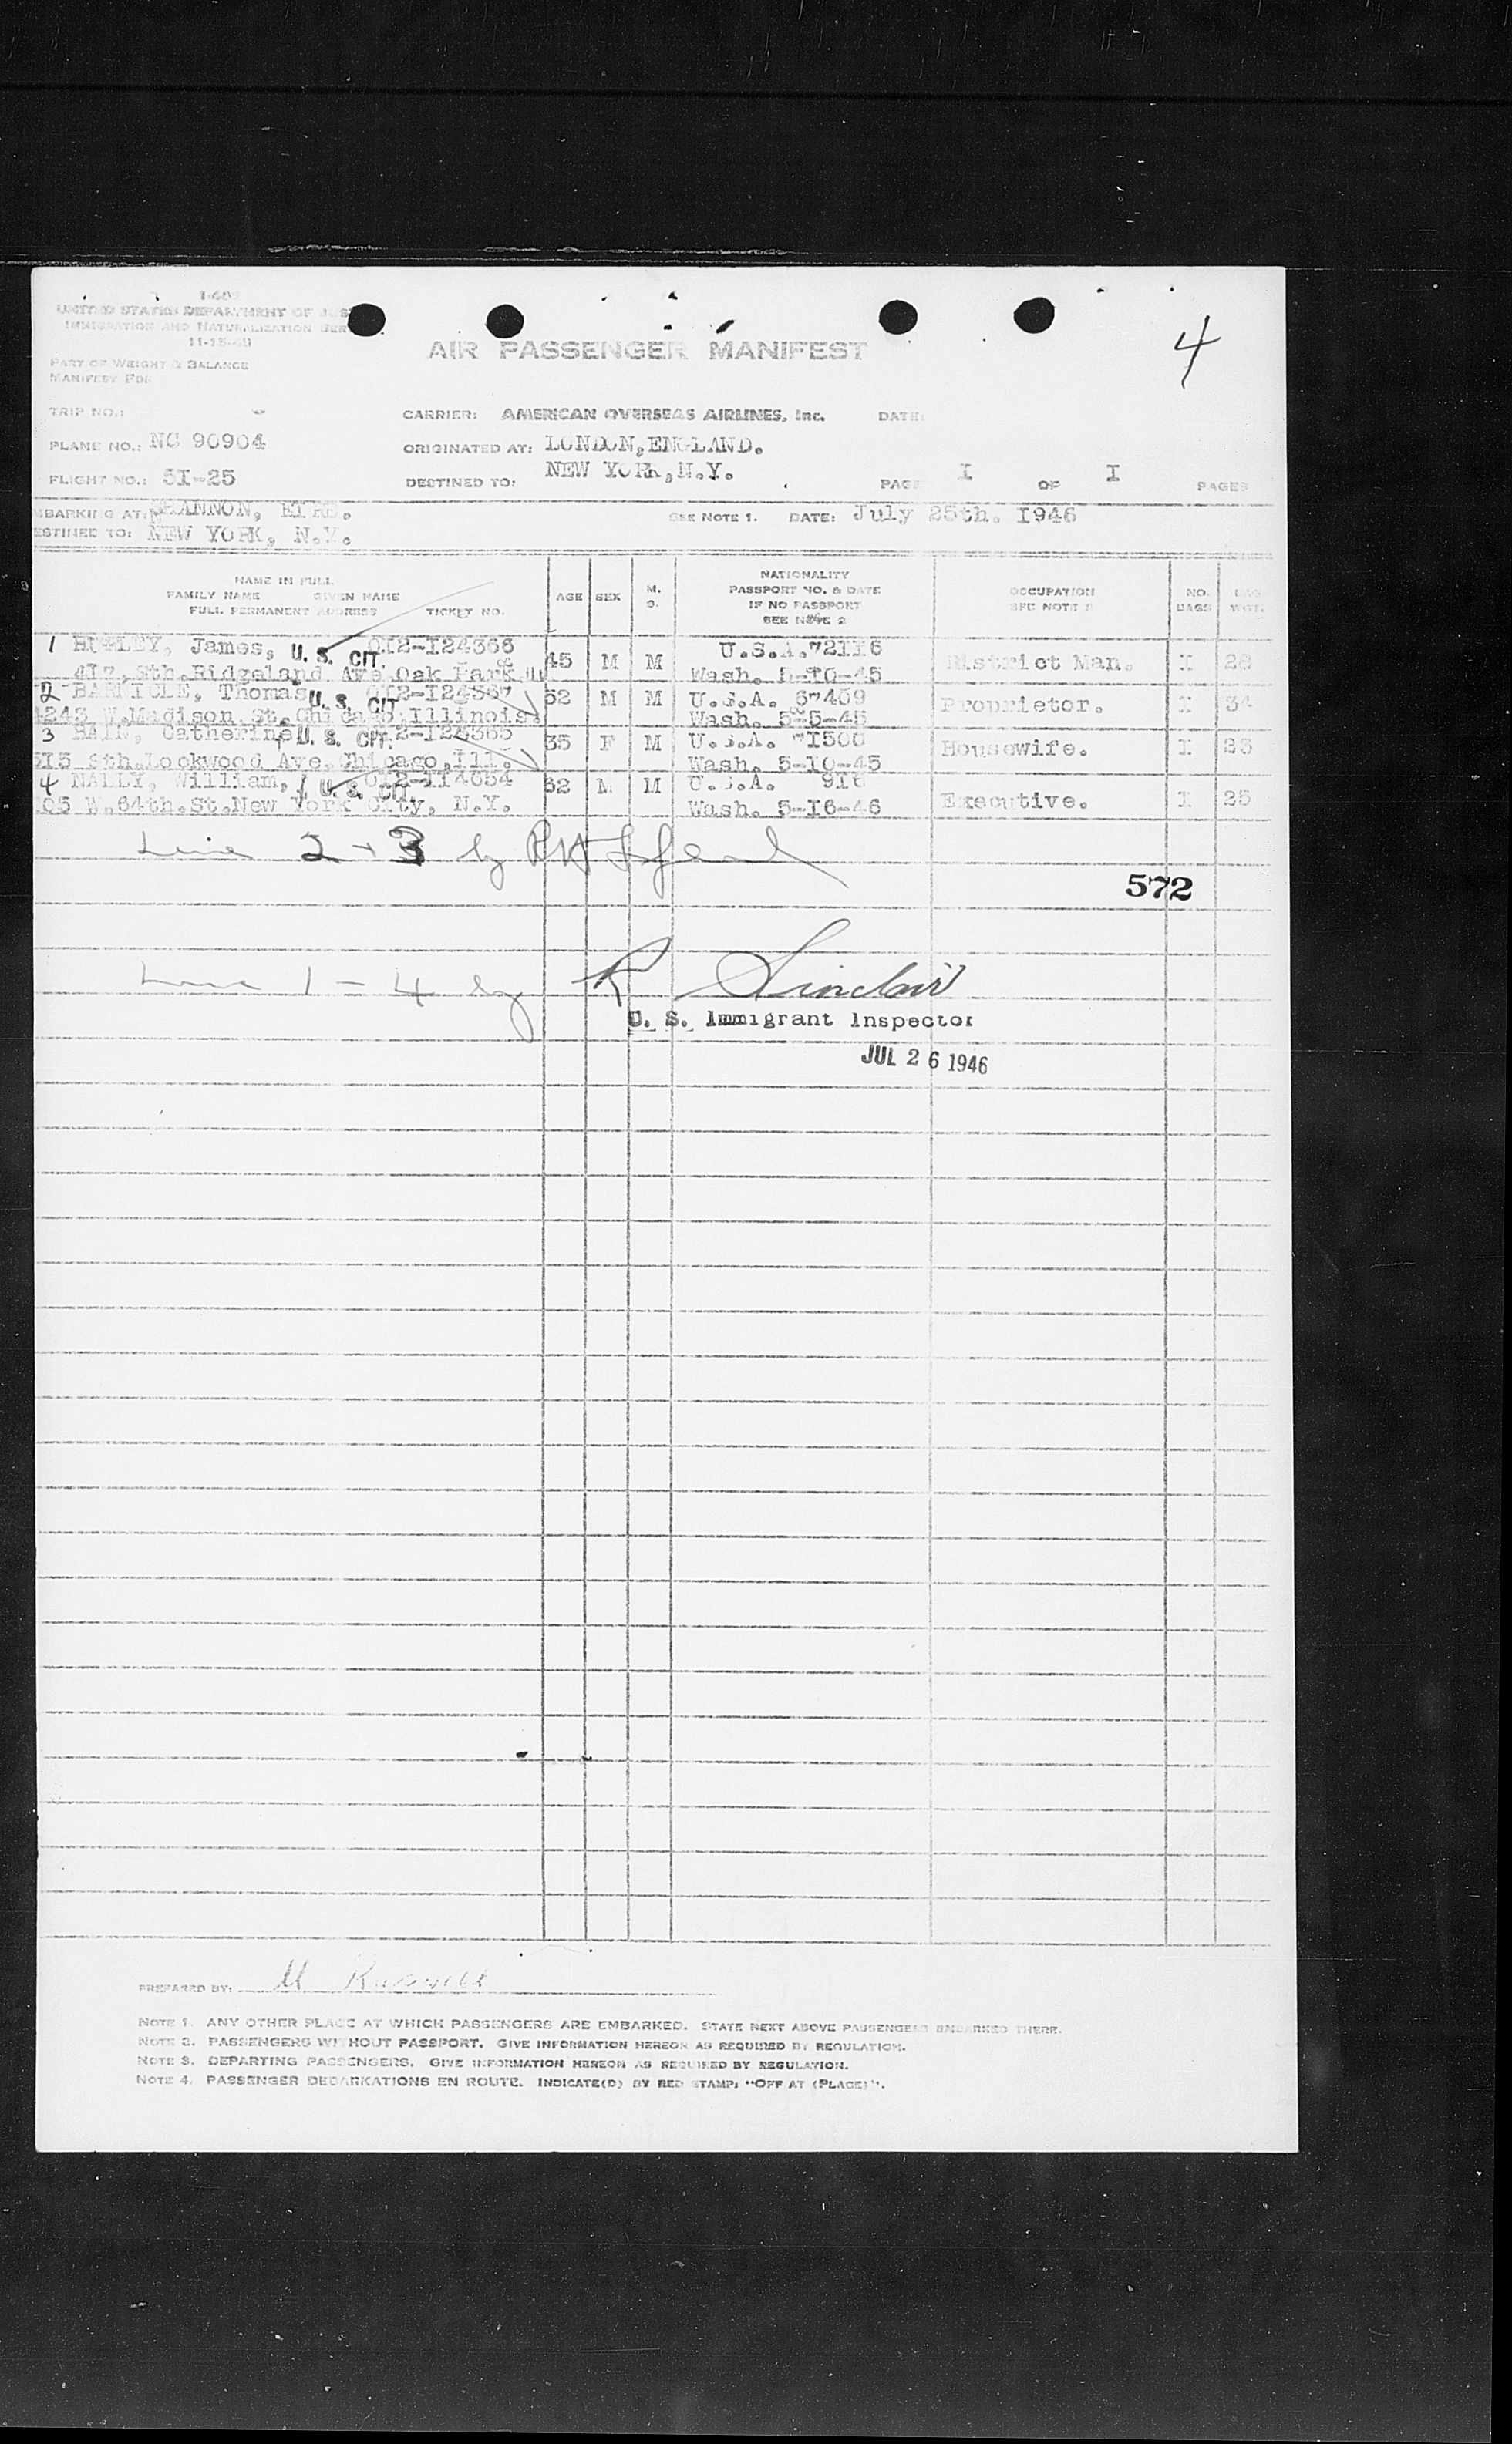 I-487
UNITED STATES DEPARTMENT OF JUS
IMMIGRATION AND NATURALIZATION SER
PART OF WEIGHT & BALANCE
MANIFEST FOR
AIR PASSENGER MANIFEST
4
TRIP NO.:
CARRIER: AMERICAN OVERSEAS AIRLINES, Inc. DATE:
PLANE NO.: NC 90904 ORIGINATED AT: LONDON, ENGLAND.
FLIGHT NO.: 5I-25 DESTINED TO: NEW YORK, N.Y. PAGE I OF I PAGES
MBARKING AT: SHANNON, EIRE. SEE NOTE 1. DATE: July 25th. I946
ESTINED TO: NEW YORK, N.Y.
NAME IN FULL
FAMILY NAME GIVEN NAME
FULL PERMANENT ADDRESS TICKET NO.
AGE SEX M. S.
NATIONALITY
PASSPORT NO. & DATE
IF NO PASSPORT
SEE NOTE 2
OCCUPATION
SEE NOTE
NO. BAGS
BAG WGT.
1 James, U. S. CIT. 0I2-I24366 45 M M U.S.A. 72II6 District Man. I 28
4I7, Sth. Ridgeland Ave Oak Park Wash. 5-I0-45
2 BARNICLE, Thomas U. S. CIT 0I2-I24367 52 M M U.S.A. 67409 Proprietor. I 34
4243 W. Madison St. Chicago, Illinois. Wash. 5-5-45
3 BAIN, Catherine U. S. CIT. 2-I24365 35 F M U.S.A. 7I500 Housewife. I 23
5I5 Sth. Lockwood Ave. Chicago, Ill. Wash. 5-I0-45
4 NALLY, William, U. S. CIT 0I2-II4054 62 M M U.S.A. 9I6 Executive. I 25
05 W. 64th. St. New York City, N.Y. Wash. 5-I6-46
Line 2 + 3 by
572
Line 1 - 4 by R Sinclair
U. S. Immigrant Inspector
JUL 26 1946
PREPARED BY: M Russell
NOTE 1. ANY OTHER PLACE AT WHICH PASSENGERS ARE EMBARKED. STATE NEXT ABOVE PASSENGERS EMBARKED THERE.
NOTE 2. PASSENGERS WITHOUT PASSPORT. GIVE INFORMATION HEREON AS REQUIRED BY REGULATION.
NOTE 3. DEPARTING PASSENGERS. GIVE INFORMATION HEREON AS REQUIRED BY REGULATION.
NOTE 4. PASSENGER DEBARKATIONS EN ROUTE. INDICATE(D) BY RED STAMP: "OFF AT (PLACE)".